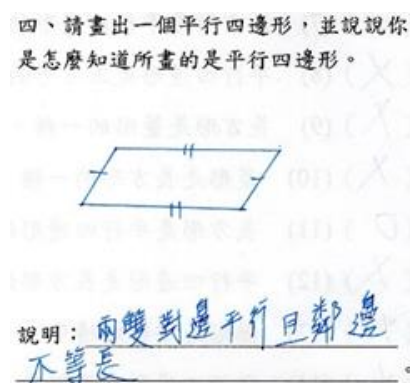 四、請畫出一個平行四邊形，並說說你
是怎麼知道所畫的是平行四邊形。
說明：兩雙對邊平行且鄰邊
不等長。